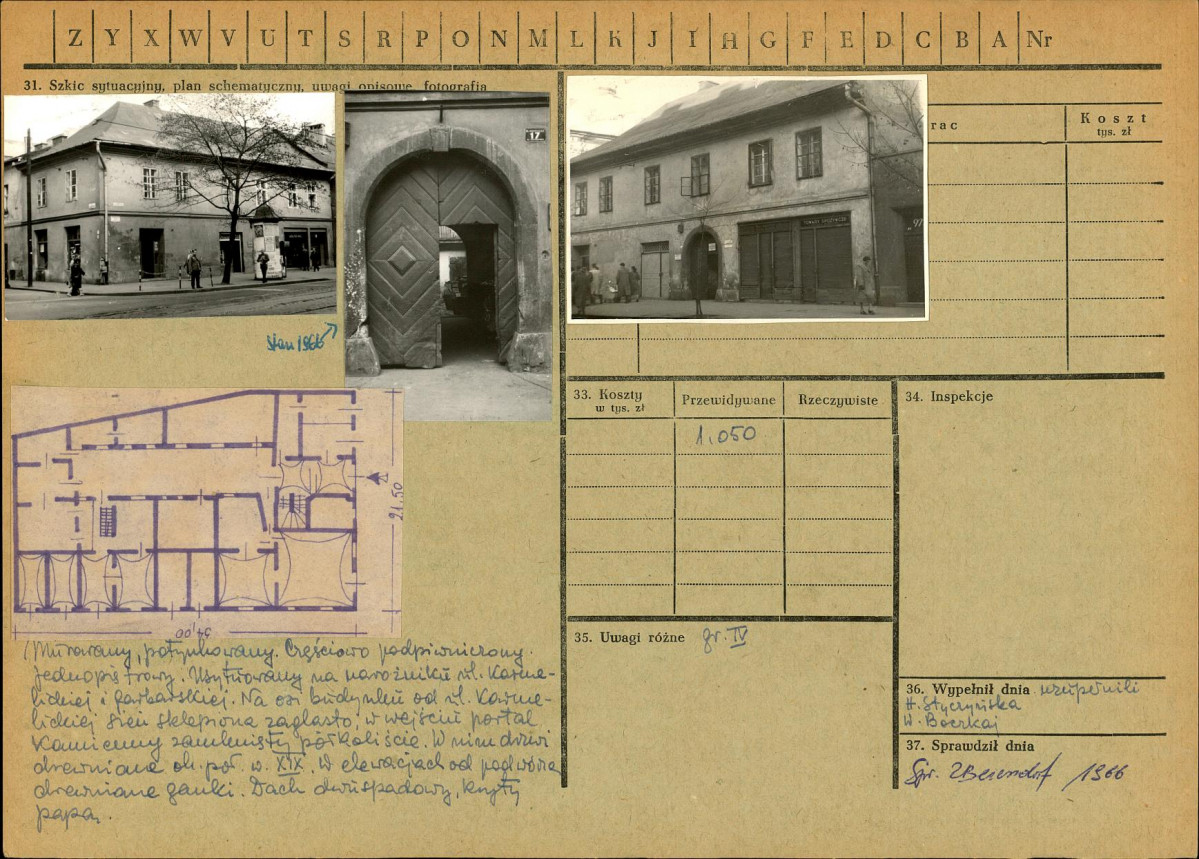 Z Y X W V U T S R P O N M L K J I H G F E D C B A Nr
31. Szkic sytuacyjny, plan schematyczny, uwagi opisowe, fotografia
17
stan 1966
rac
Koszt
tys. zł
33. Koszty
w tys. zł
Przewidywane
Rzeczywiste
1.050
34. Inspekcje
21.50
34,00
Murowany, potynkowany. Częściowo podpiwniczony.
Jednopiętrowy. Usytuowany na narożniku ul. Karme-
lickiej i Garbarskiej. Na osi budynku od ul. Karme-
lickiej sień sklepiona żaglasto, w wejściu portal
kamienny zamknięty półkoliście. W nim drzwi
drewniane ok. poł. w. XIX. W elewacjach od podwórza
drewniane ganki. Dach dwuspadowy, kryty
papą.
35. Uwagi różne gr. IV
36. Wypełnił dnia uzupełnili
H. Styczyńska
W. Boczkaj
37. Sprawdził dnia
Spr. 1966